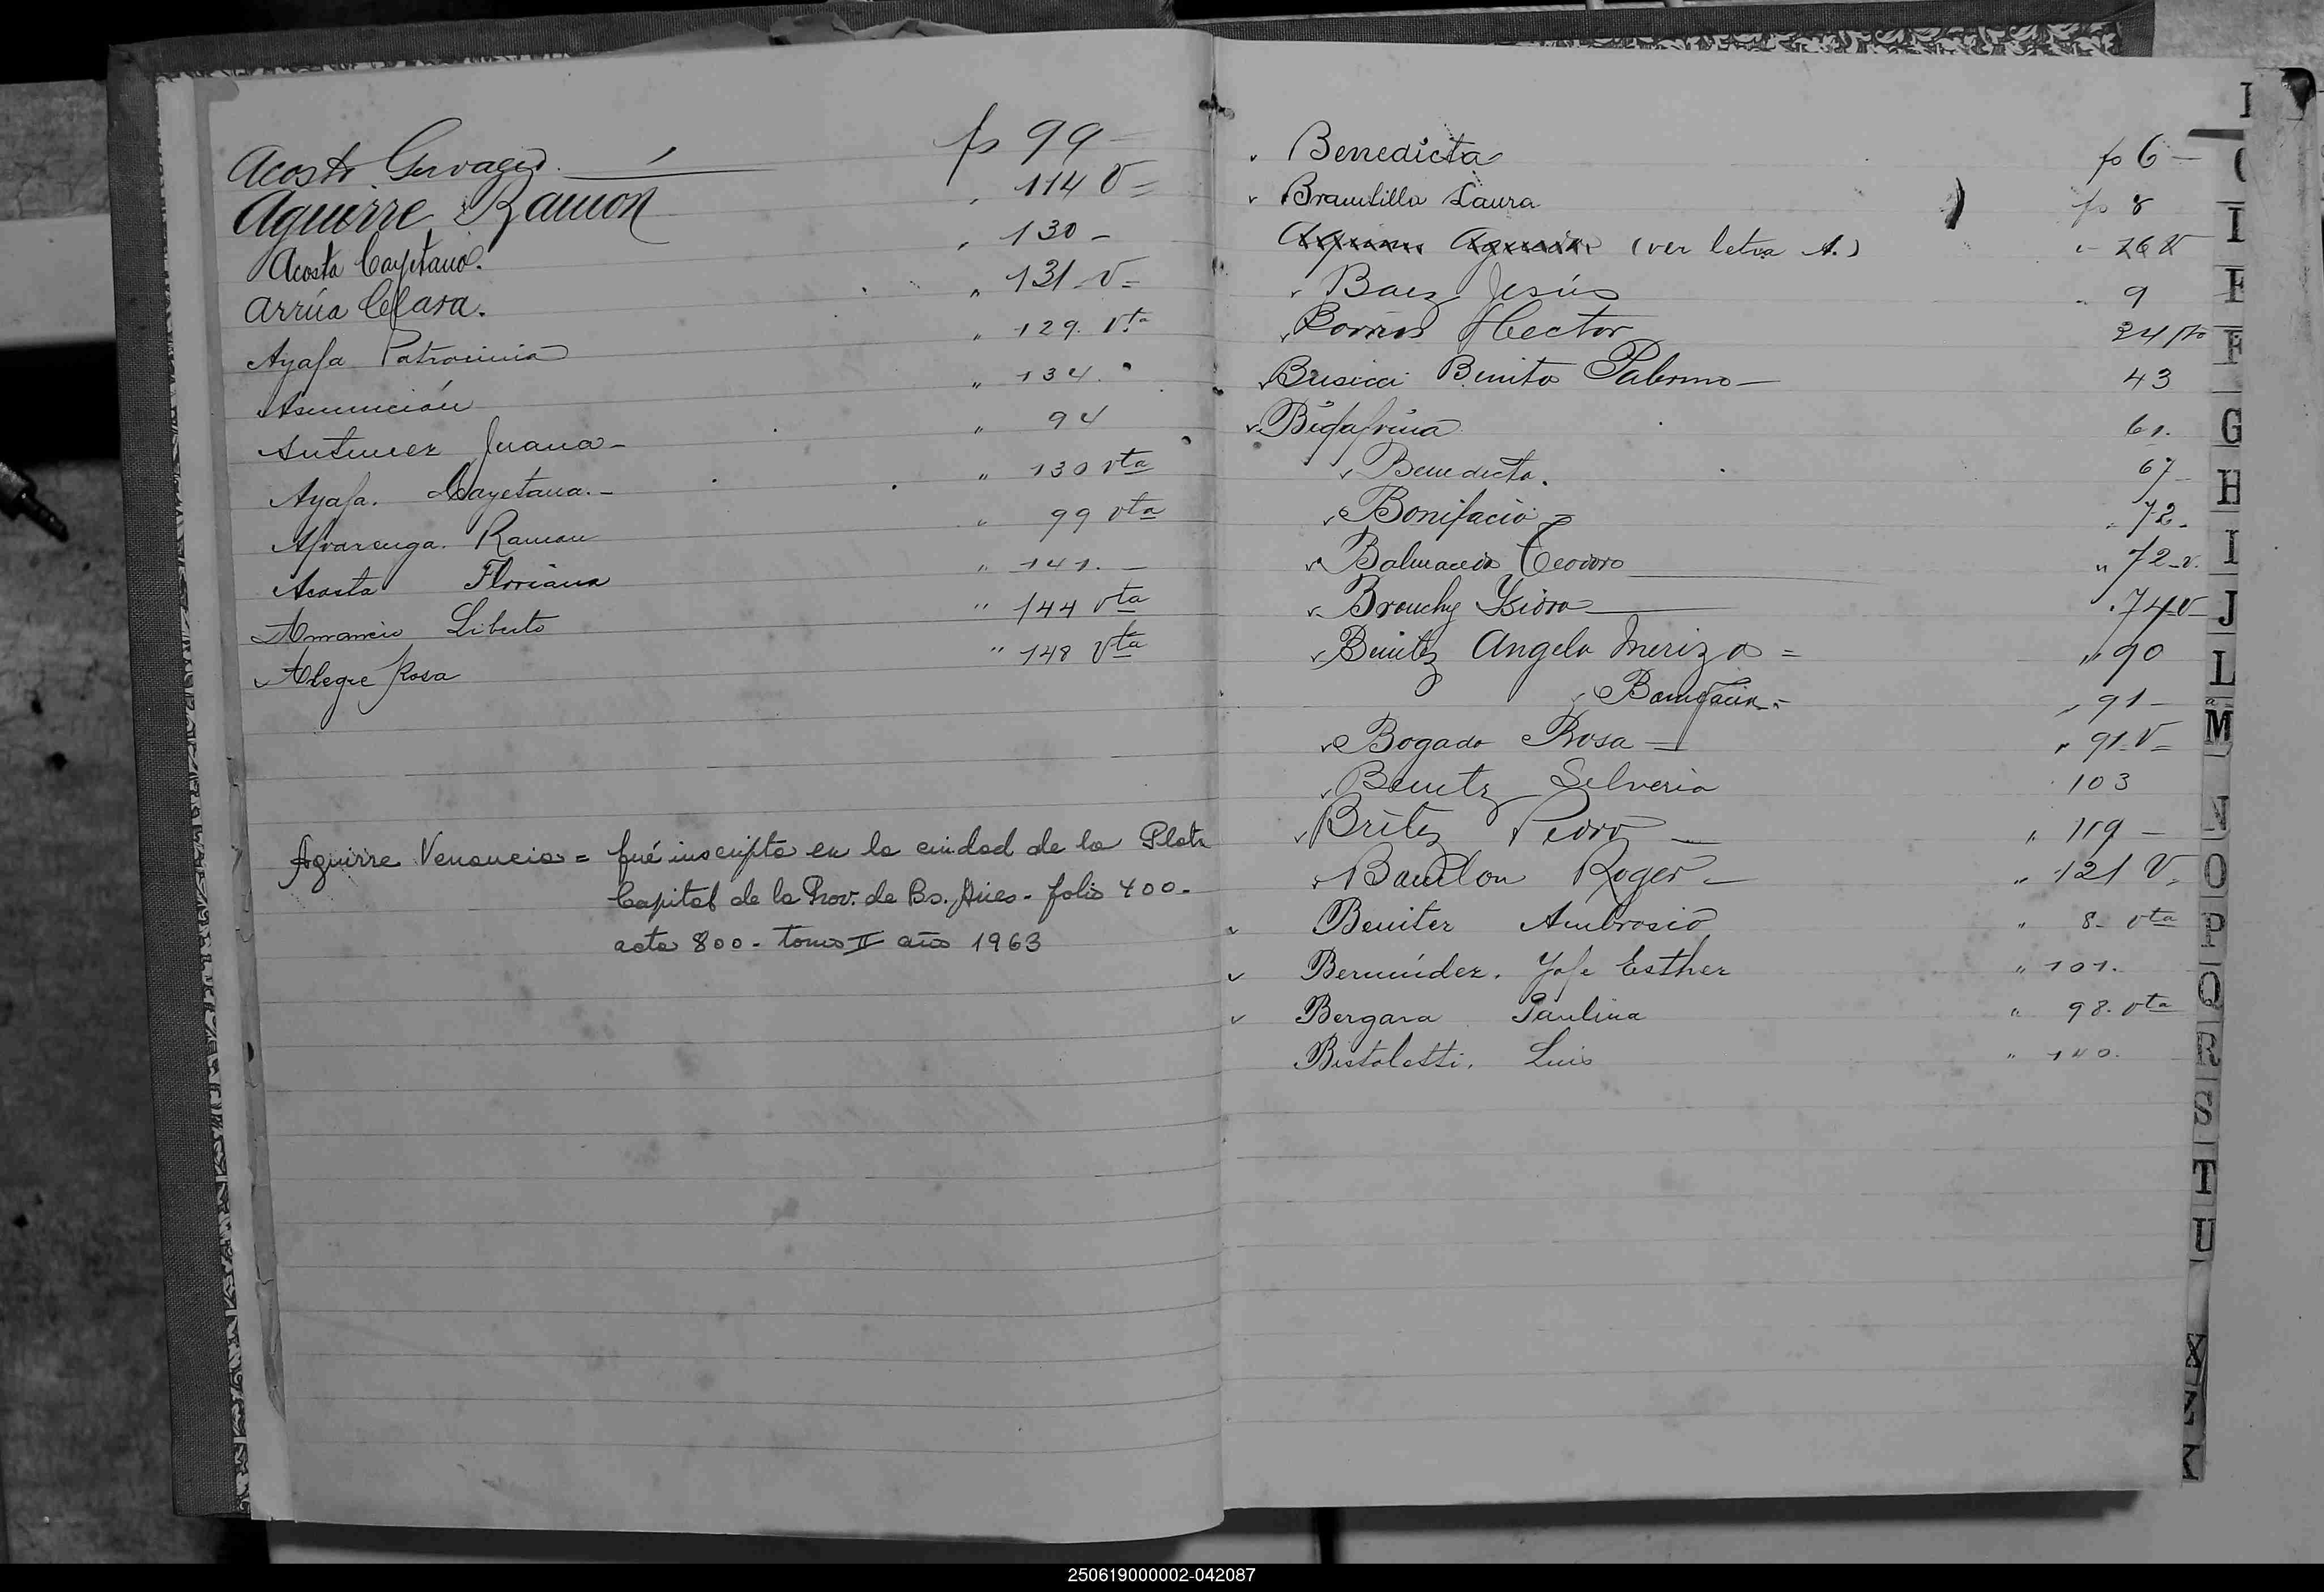 Acosta Gervacio. fs 99 -
Aguirre Ramon " 114 V =
Acosta Cayetano. " 130 -
Arrúa Clara. " 131 V =
Ayala Patrocinia " 129. Vta
Asunción " 134.
Antunez Juana - " 94
Ayala. Cayetana. - " 130 vta
Alvarenga. Ramon " 99 vta
Acosta Floriana " 141. -
Amancio Liberto " 144 vta
Alegre Rosa " 148 Vta
Aguirre Venancio = fué inscripto en la ciudad de la Plata
Capital de la Prov. de Bs. Aires - folio 400 -
acta 800 - tomo II año 1963
Benedicta fo 6 -
Brambilla Laura fo 8
(ver letra A.) " 26 V
Baez Jesús " 9
Hector 24
Benito Palermo - 43
61.
Benedicta. 67 -
Bonifacio " 72 -
Balmaceda Teodoro " 72 - v.
Brouchy Ysidro " 74 v
Benitez Angela = " 90
Bonifacia - " 91 -
Bogado Rosa - " 91 V =
Benitz Silveria 103
Britez Pedro - " 119 -
Roger - " 121 V
Beniter Ambrosio " 8 - vta
Bermúdez. Esther " 101.
Bergara Paulina " 98. vta
Bistoletti. Luis " 140.
G
H
I
J
L
M
N
O
P
Q
R
S
T
U
X
Z
K
250619000002-042087